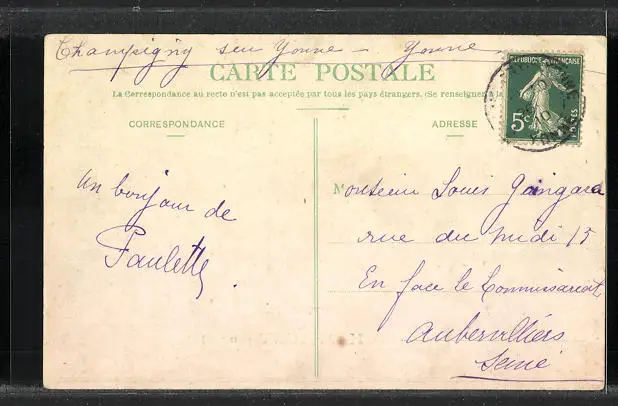 Champigny sur Yonne - Yonne
CARTE POSTALE
La Correspondance au recto n'est pas acceptée par tous les pays étrangers. (Se renseigner à la
CORRESPONDANCE
ADRESSE
REPUBLIQUE FRANÇAISE
5c
POSTES
un bonjour de
Paulette
Monsieur Louis
rue du midi 15
En face le Commissariat
Aubervilliers
Seine